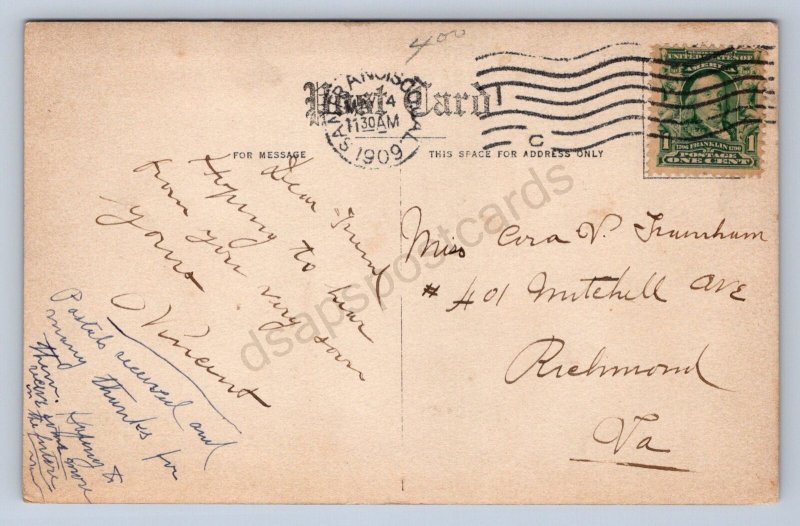 400
Post Card
SAN FRANCISCO, CAL.
MAY 4
11 30 AM
1909
C
UNITED STATES OF
AMERICA
1 1706 FRANKLIN 1790 1
POSTAGE
ONE CENT
FOR MESSAGE
THIS SPACE FOR ADDRESS ONLY
Dear Friend
Hoping to hear
from you very soon
yours
Vincent
Postals received and
many thanks for
them. Hoping to
receive some more
in the future
Miss Cora V.
# 401 Mitchell Ave
Richmond
Va
dsapspostcards